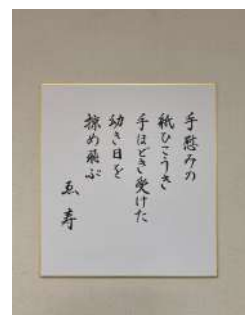 手慰みの
紙ひこうき
手ほどき受けた
幼き日を
掠め飛ぶ
ゑ寿